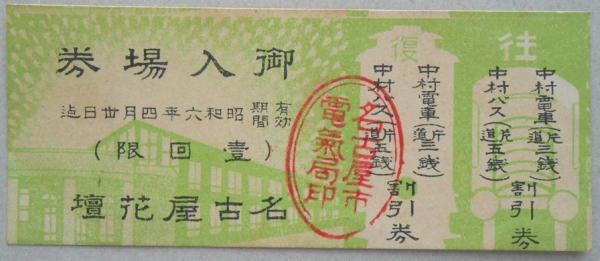 往
中村電車(片道三銭)
中村バス(片道五銭)
割引券
復
中村電車(片道三銭)
中村バス(片道五銭)
割引券
名古屋市
電氣局印
御入場券
有効期間 昭和六年四月廿日迠
(壹回限)
名古屋花壇